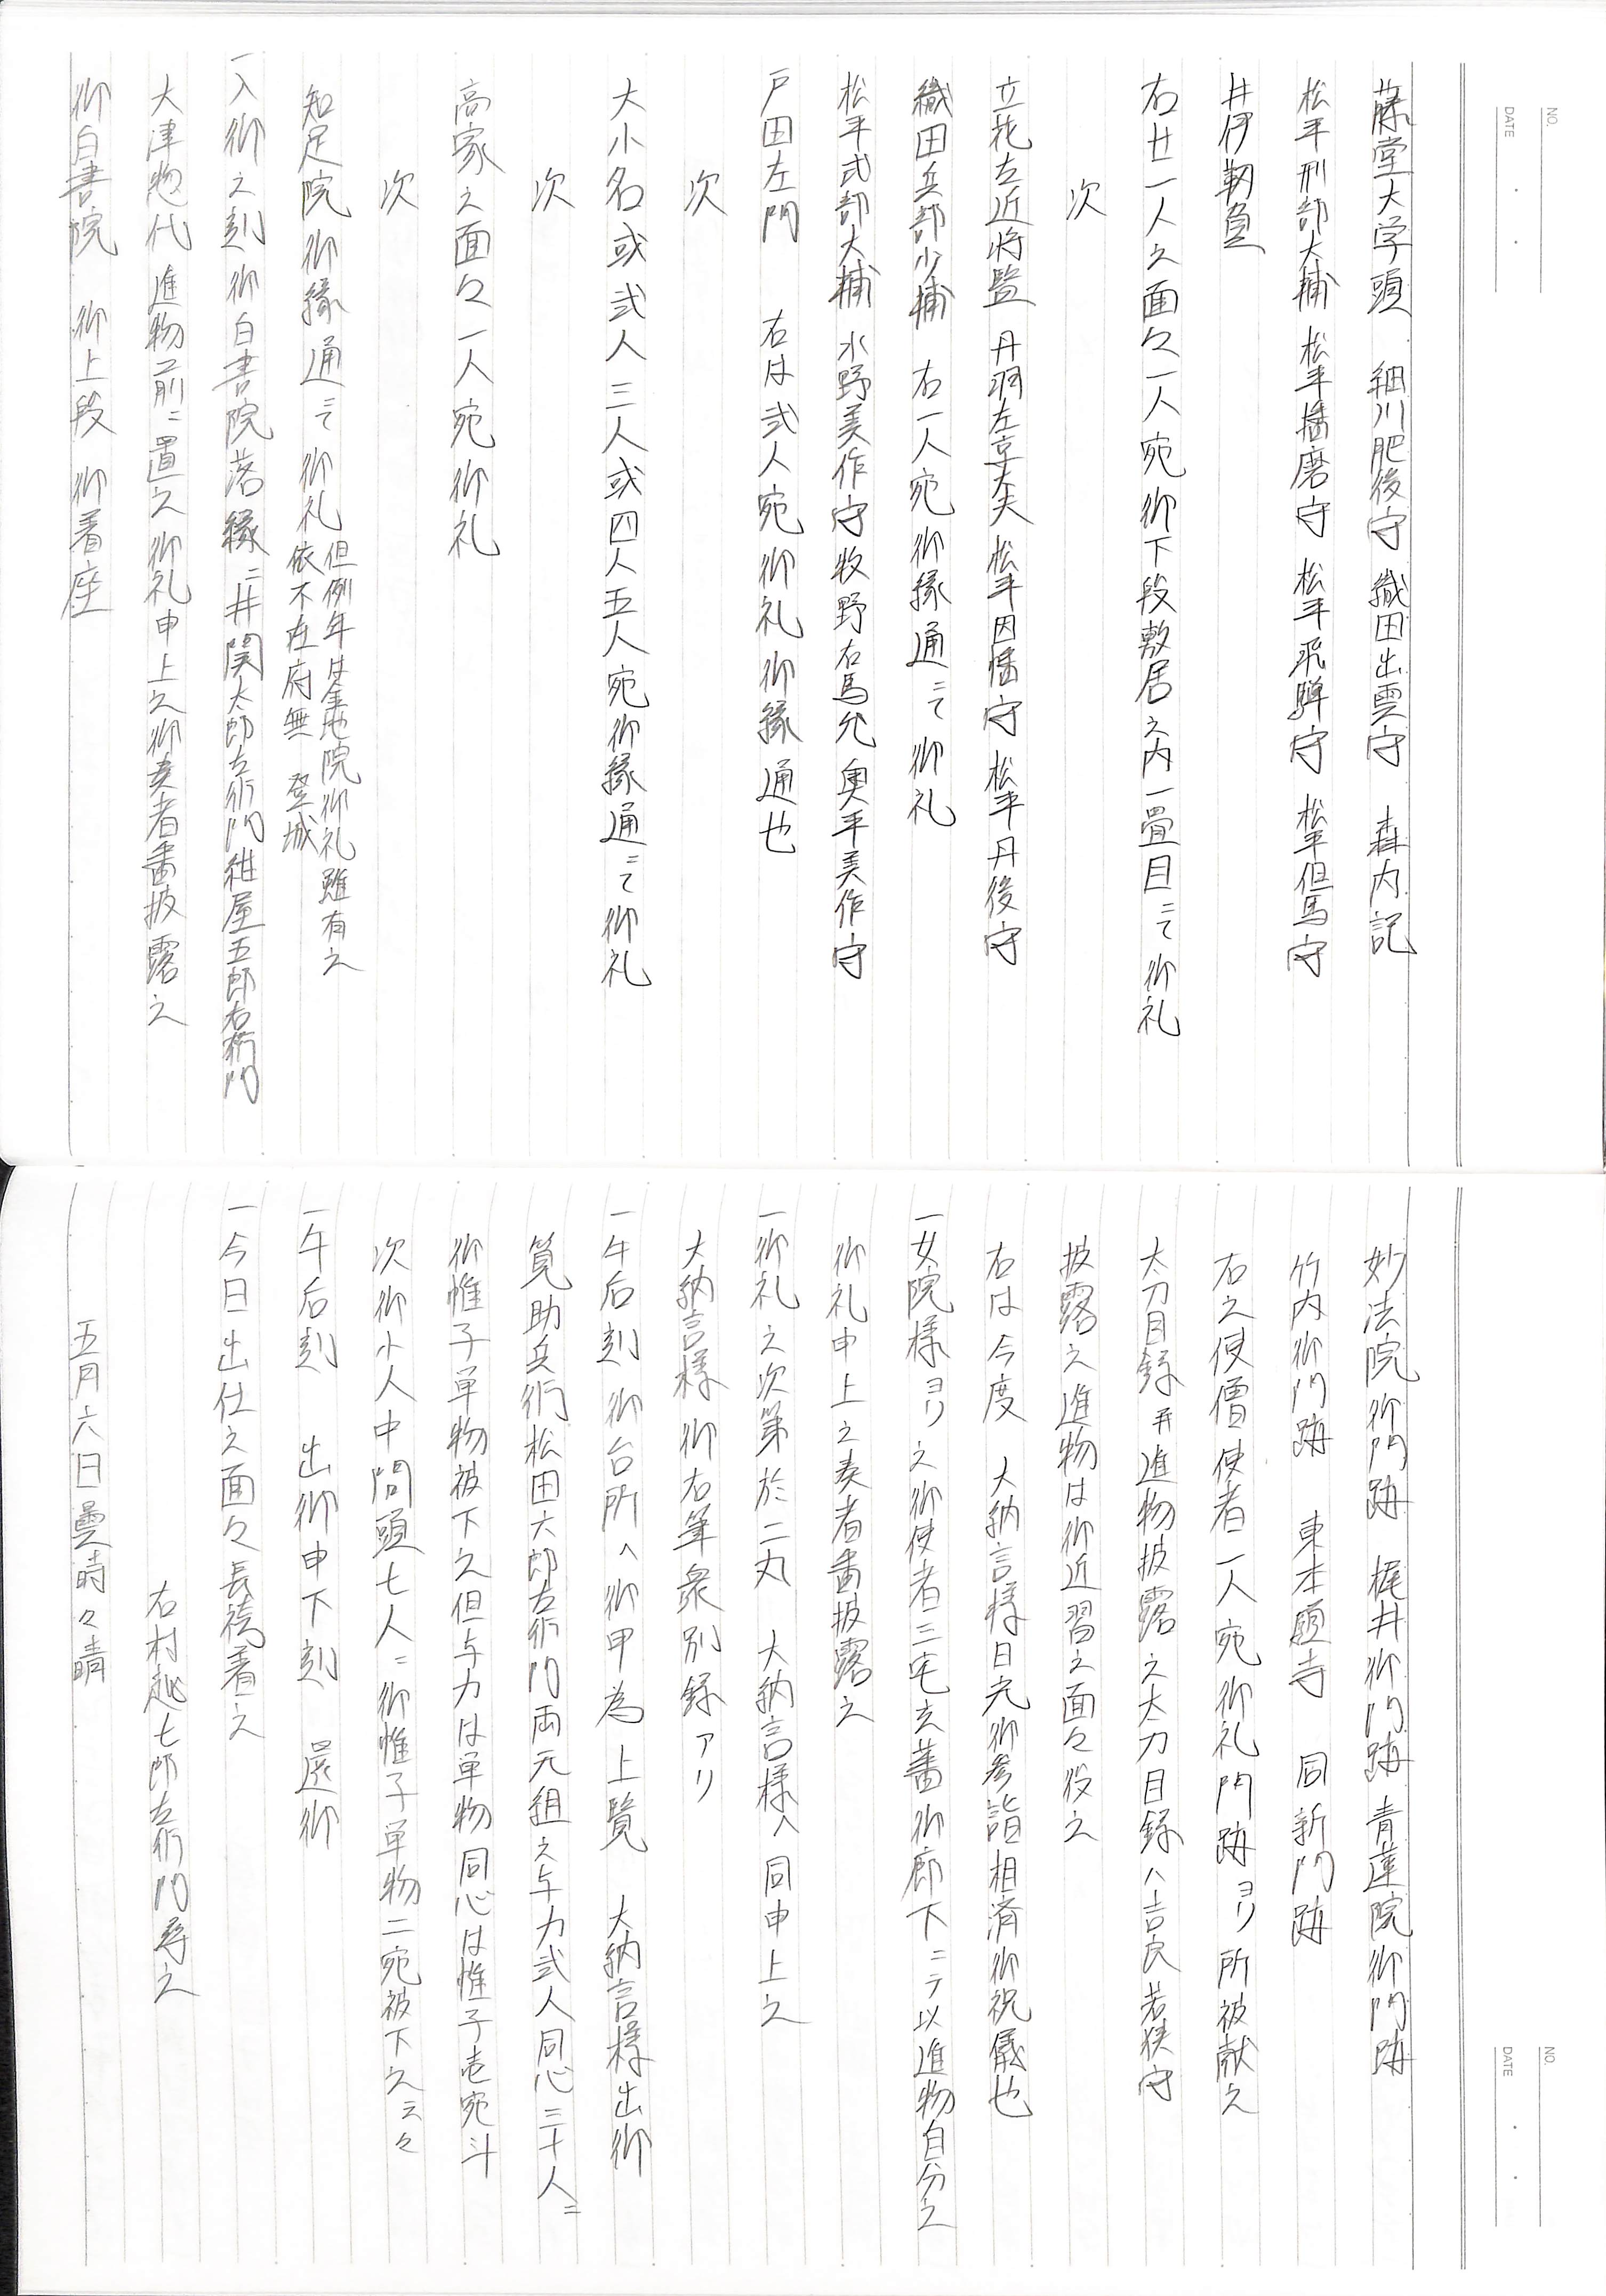 NO.
DATE
藤堂大学頭　細川肥後守　織田出雲守　森内記
松平刑部大輔　松平播磨守　松平飛騨守　松平但馬守
井伊靭負
右廿一人之面々一人宛御下段敷居之内一畳目ニて御礼
次
立花左近将監　丹羽左京大夫　松平因幡守　松平丹後守
織田兵部少輔　右一人宛御縁通ニて御礼
松平式部大輔　水野美作守　牧野右馬允　奥平美作守
戸田左門　右は弐人宛御礼御縁通也
次
大小名或弐人三人或四人五人宛御縁通ニて御礼
次
高家之面々一人宛御礼
次
知足院御縁通ニて御礼　但例年は金地院御礼雖有之
依不在府無登城
一入御之刻御白書院落縁ニ井関太郎左衛門紺屋五郎右衛門
大津惣代進物前ニ置之御礼申上之御奏者番披露之
御白書院　御上段　御着座
NO.
DATE
妙法院御門跡　梶井御門跡　青蓮院御門跡
竹内御門跡　東本願寺　同新門跡
右之使價使者一人宛御礼門跡ヨリ所被献之
太刀目録并進物披露之太刀目録ハ吉良若狭守
披露之進物は御近習之面々役之
右は今度　大納言様日光御参詣相済御祝儀也
一女院様ヨリ之御使者三宅玄蕃御廊下ニテ以進物自分之
御礼申上之奏者番披露之
一御礼之次第於二丸　大納言様へ同申上之
大納言様御右筆衆別録アリ
一午后刻御台所へ御甲為上覧　大納言様出御
筧助兵衛松田六郎左衛門両元組之与力弐人同心三十人ニ
御帷子単物被下之但与力は単物同心は帷子壱宛斗
次御小人中間頭七人ニ御帷子単物二宛被下之云々
一午后刻　出御申下刻　還御
一今日出仕之面々長袴着之
右村越七郎左衛門尋之
五月六日曇時々晴